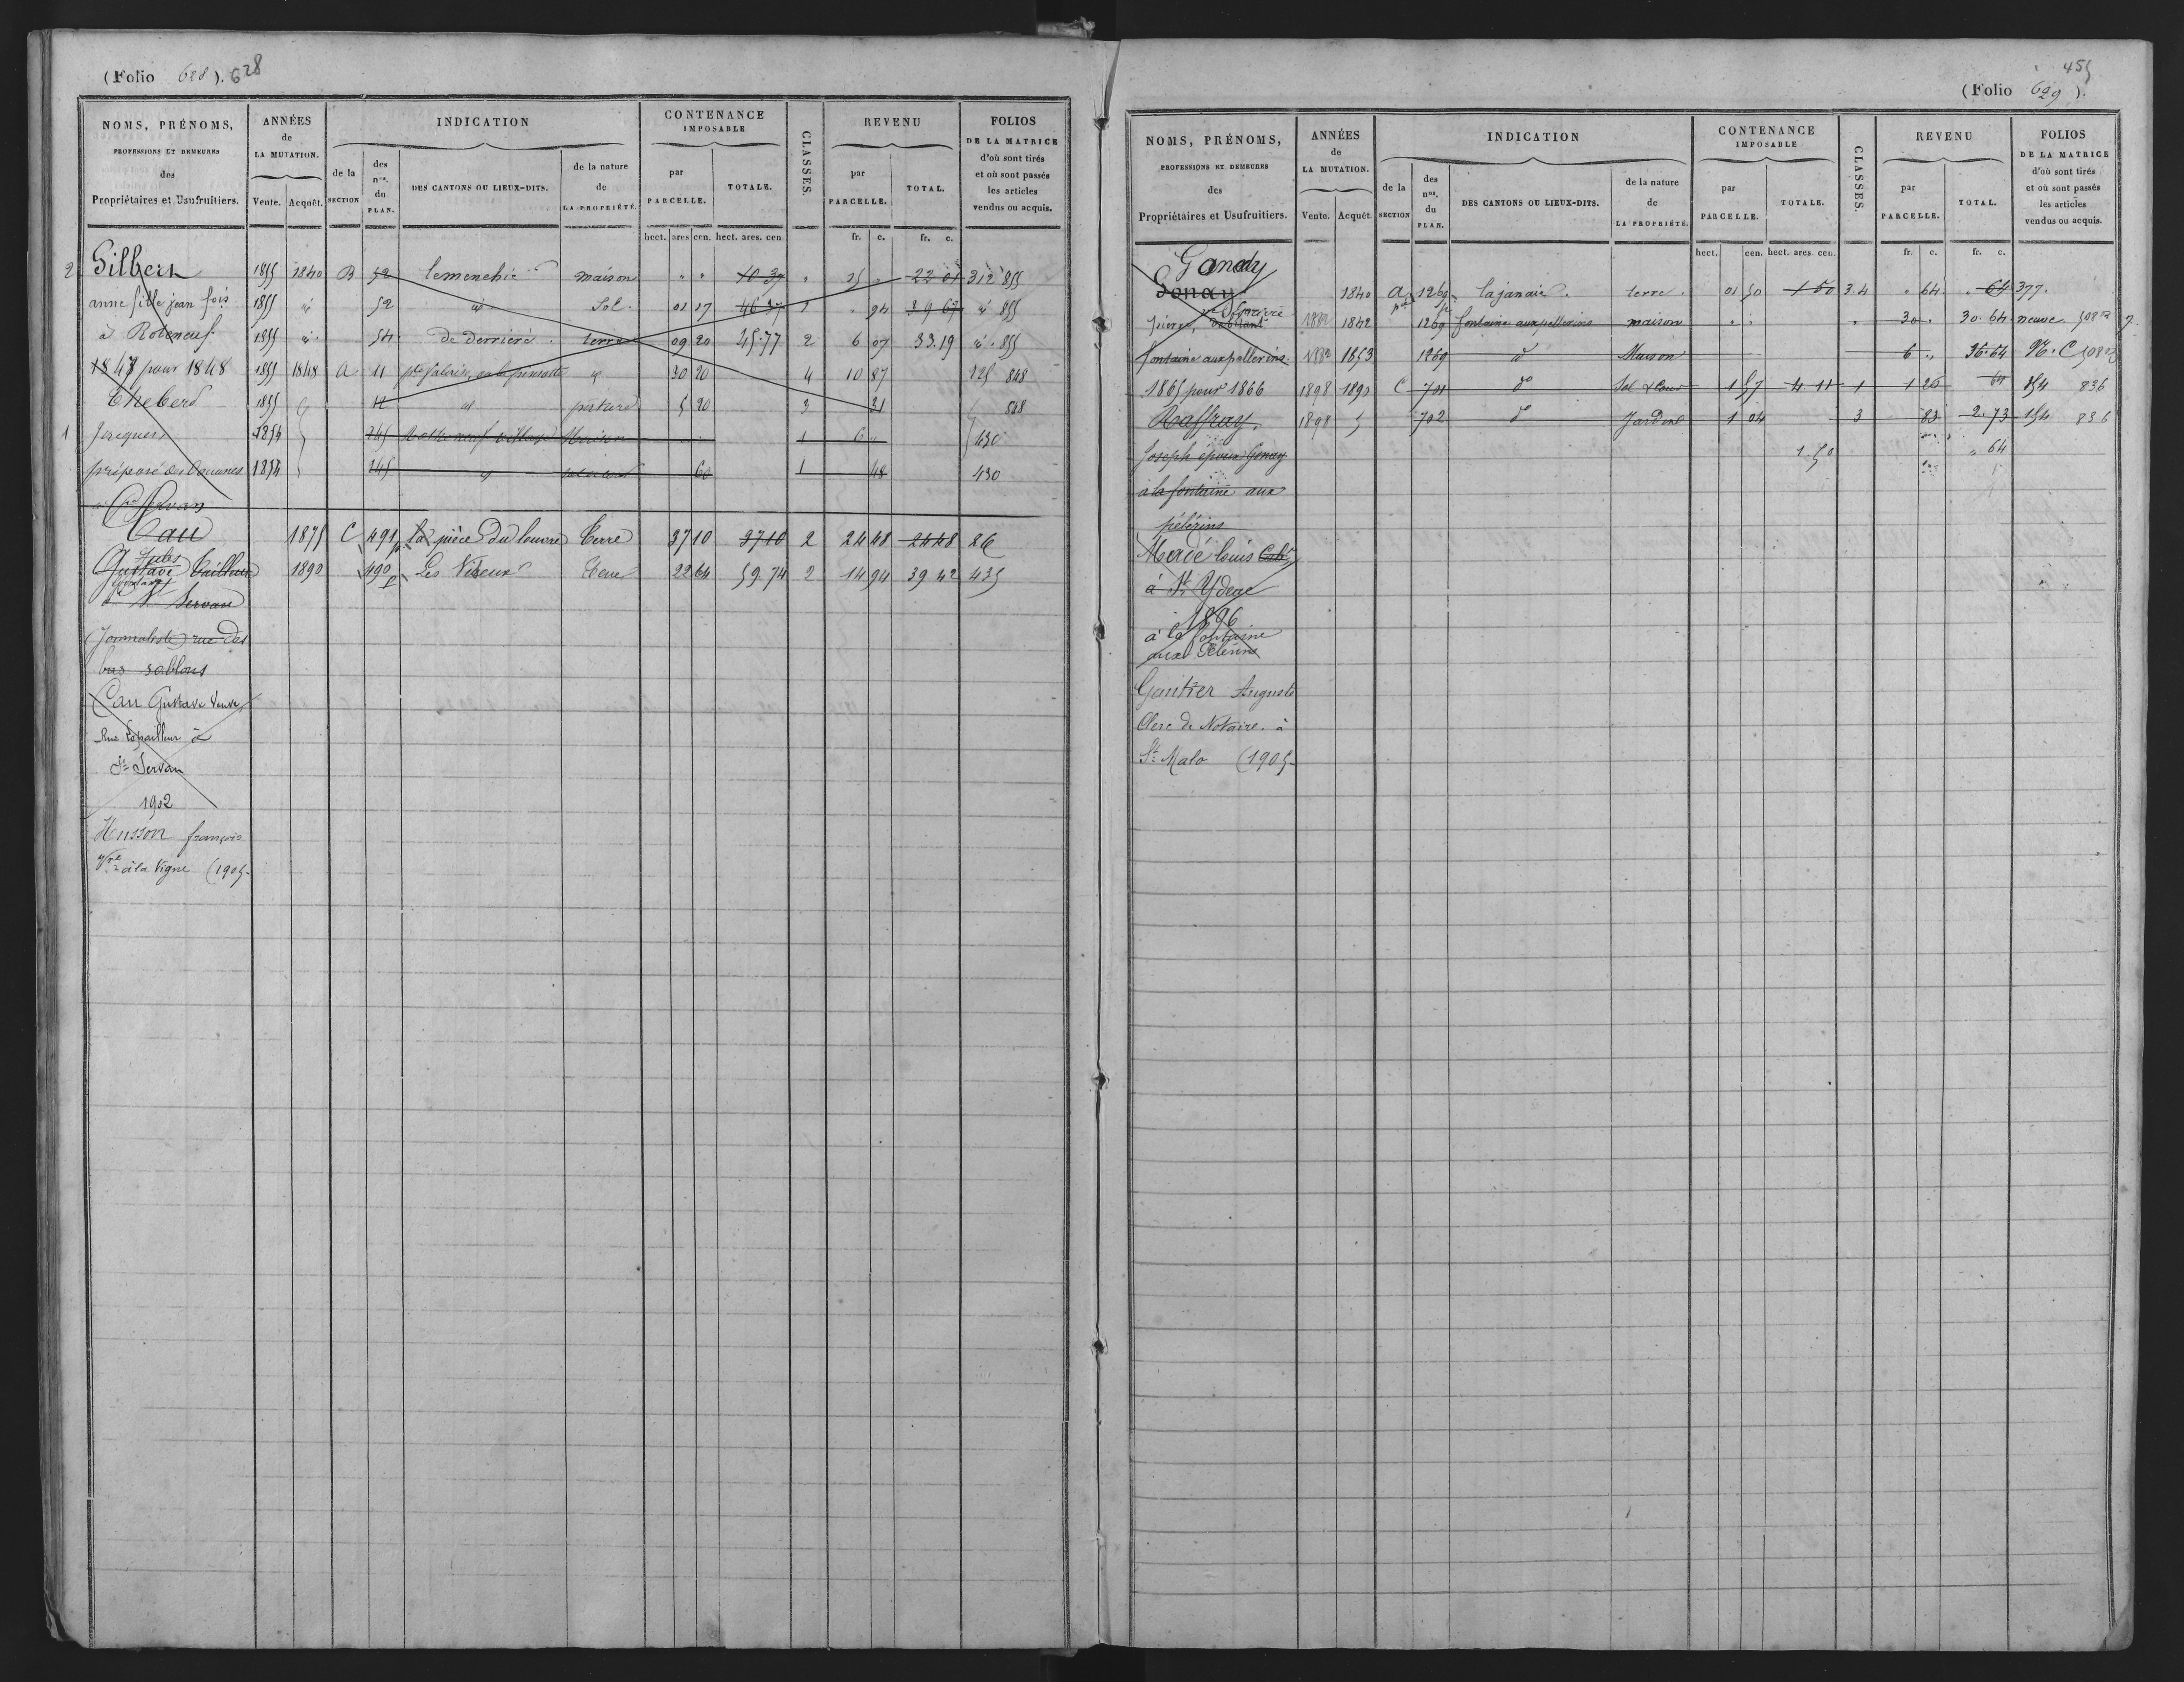 (Folio 628). 628
NOMS, PRÉNOMS, PROFESSIONS ET DEMEURES des Propriétaires et Usufruitiers.
ANNÉES de LA MUTATION. Vente. Acquêt.
INDICATION de la SECTION des nos. du PLAN. DES CANTONS OU LIEUX-DITS. de la nature de LA PROPRIÉTÉ.
CONTENANCE IMPOSABLE par PARCELLE. TOTALE.
CLASSES.
REVENU par PARCELLE. TOTAL.
FOLIOS DE LA MATRICE d'où sont tirés et où sont passés les articles vendus ou acquis.
hect. ares cen. hect. ares. cen. fr. c. fr. c.
2 Gilbert 1855 1840 B 52 maison " " 10 37 " 15 " 22 01 312 855
anne fille jean fois 1855 id 52 id Sol. 01 17 46 37 1 " 94 39 67 id 855
à Roteneuf 1855 id 54 De Derrière terre 09 20 45.77 2 6 07 33.19 id 855
1847 pour 1848 1855 1848 A 11 id 30 20 4 10 87 848
Thebert 1855 12 id pature 5 20 3 31 848
1 Jacques 1854 245 Maison 1 6 " 430
préposé des Douanes 1854 245 id 60 1 48 430
à St Servan
Cau 1875 C 491 p La pièce du louvre Terre 37 10 37 10 2 24 48 24 48 26
Jules Gustave 1890 490 p Terre 22 64 59 74 2 14 94 39 42 435
à St Servan
Journaliste rue des
bas sablons
Cau Gustave Veuve
Rue Lepailleur à
St Servan
1902
Husson françois
Vve à la Vigne (1905
455
(Folio 629).
NOMS, PRÉNOMS, PROFESSIONS ET DEMEURES des Propriétaires et Usufruitiers.
ANNÉES de LA MUTATION. Vente. Acquêt.
INDICATION de la SECTION des nos. du PLAN. DES CANTONS OU LIEUX-DITS. de la nature de LA PROPRIÉTÉ.
CONTENANCE IMPOSABLE par PARCELLE. TOTALE.
CLASSES.
REVENU par PARCELLE. TOTAL.
FOLIOS DE LA MATRICE d'où sont tirés et où sont passés les articles vendus ou acquis.
hect. cen. hect. ares. cen. fr. c. fr. c.
Gonay 1840 A 1269 la janaie terre 01 50 1 50 3.4 " 64 " 64 377.
pierre, 1882 1842 1269 fontaine aux pellerins maison " " " 30 " 30.64 neuve
fontaine aux pellerins 1882 1853 1269 do Maison 6 " 36.64 N. C
1865 pour 1866 1898 1890 C 701 do Sol & Cour 1 57 4 11 1 1 26 64 154 836
Raffray, 1898 702 do Jardin 1 04 3 83 2.73 154 836
Joseph époux Gonay 1.50 " 64
à la fontaine aux
pélérins
louis
à St Ydeuc
1896
à la fontaine
aux Pélerins
Gautier Auguste
Clerc de Notaire à
St Malo (1905